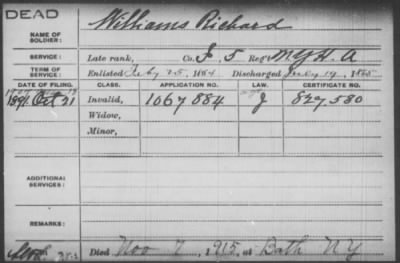 DEAD
NAME OF SOLDIER: Williams Richard
SERVICE: Late rank, Co. I, 5 Reg't N.Y. H. A
TERM OF SERVICE: Enlisted Feby 25, 1864 Discharged July 19, 1865
DATE OF FILING. CLASS. APPLICATION NO. LAW. CERTIFICATE NO.
1891 Oct 21 Invalid, 1067884 J 827,580
Widow,
Minor,
ADDITIONAL SERVICES:
REMARKS:
Died Nov 7, 1915, at Bath NY